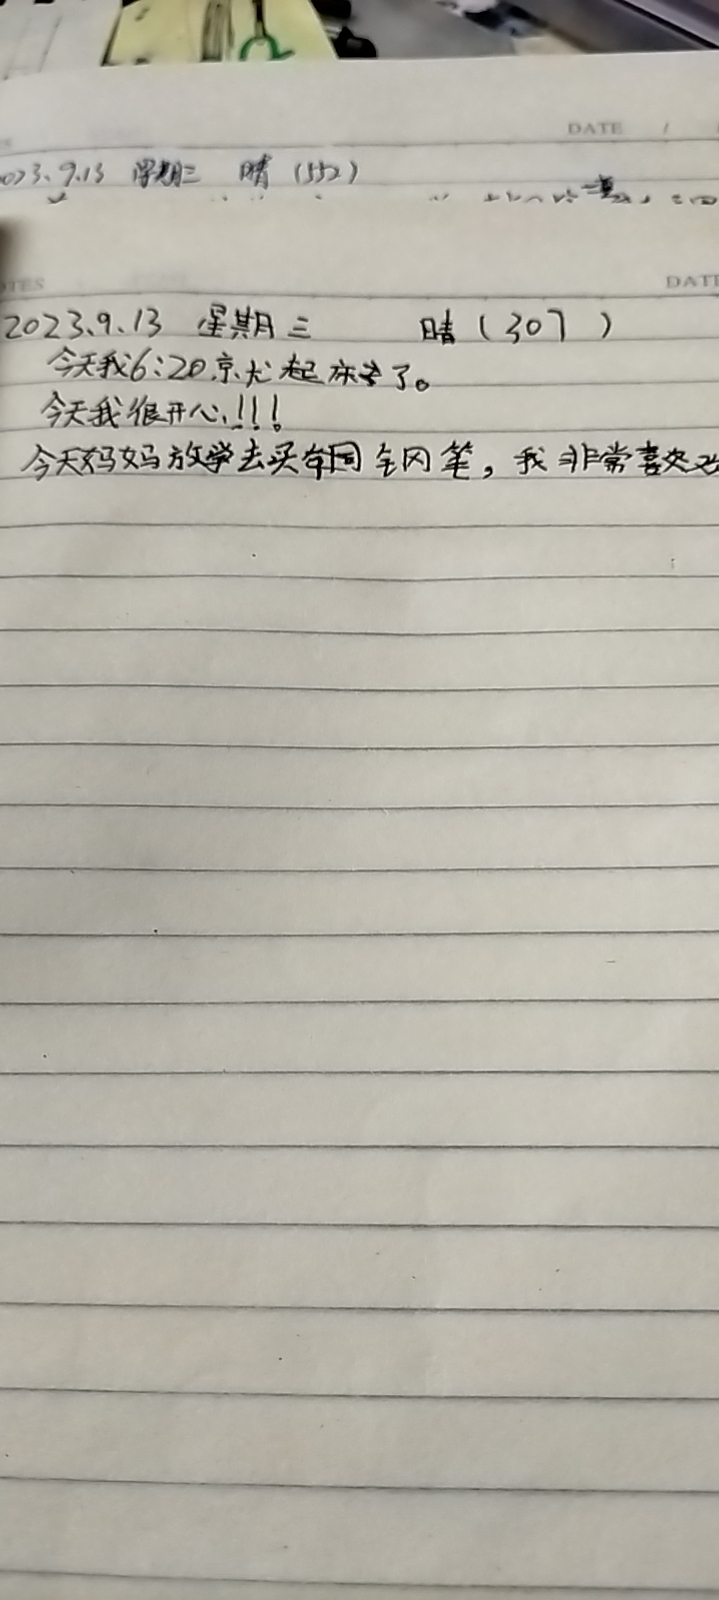 DATE /
2023.9.13 星期三 晴 (552)
NOTES DATE
2023.9.13 星期三 晴(307)
今天我6:20就起床了。
今天我很开心!!!
今天妈妈放学去买有同钢笔,我非常喜欢